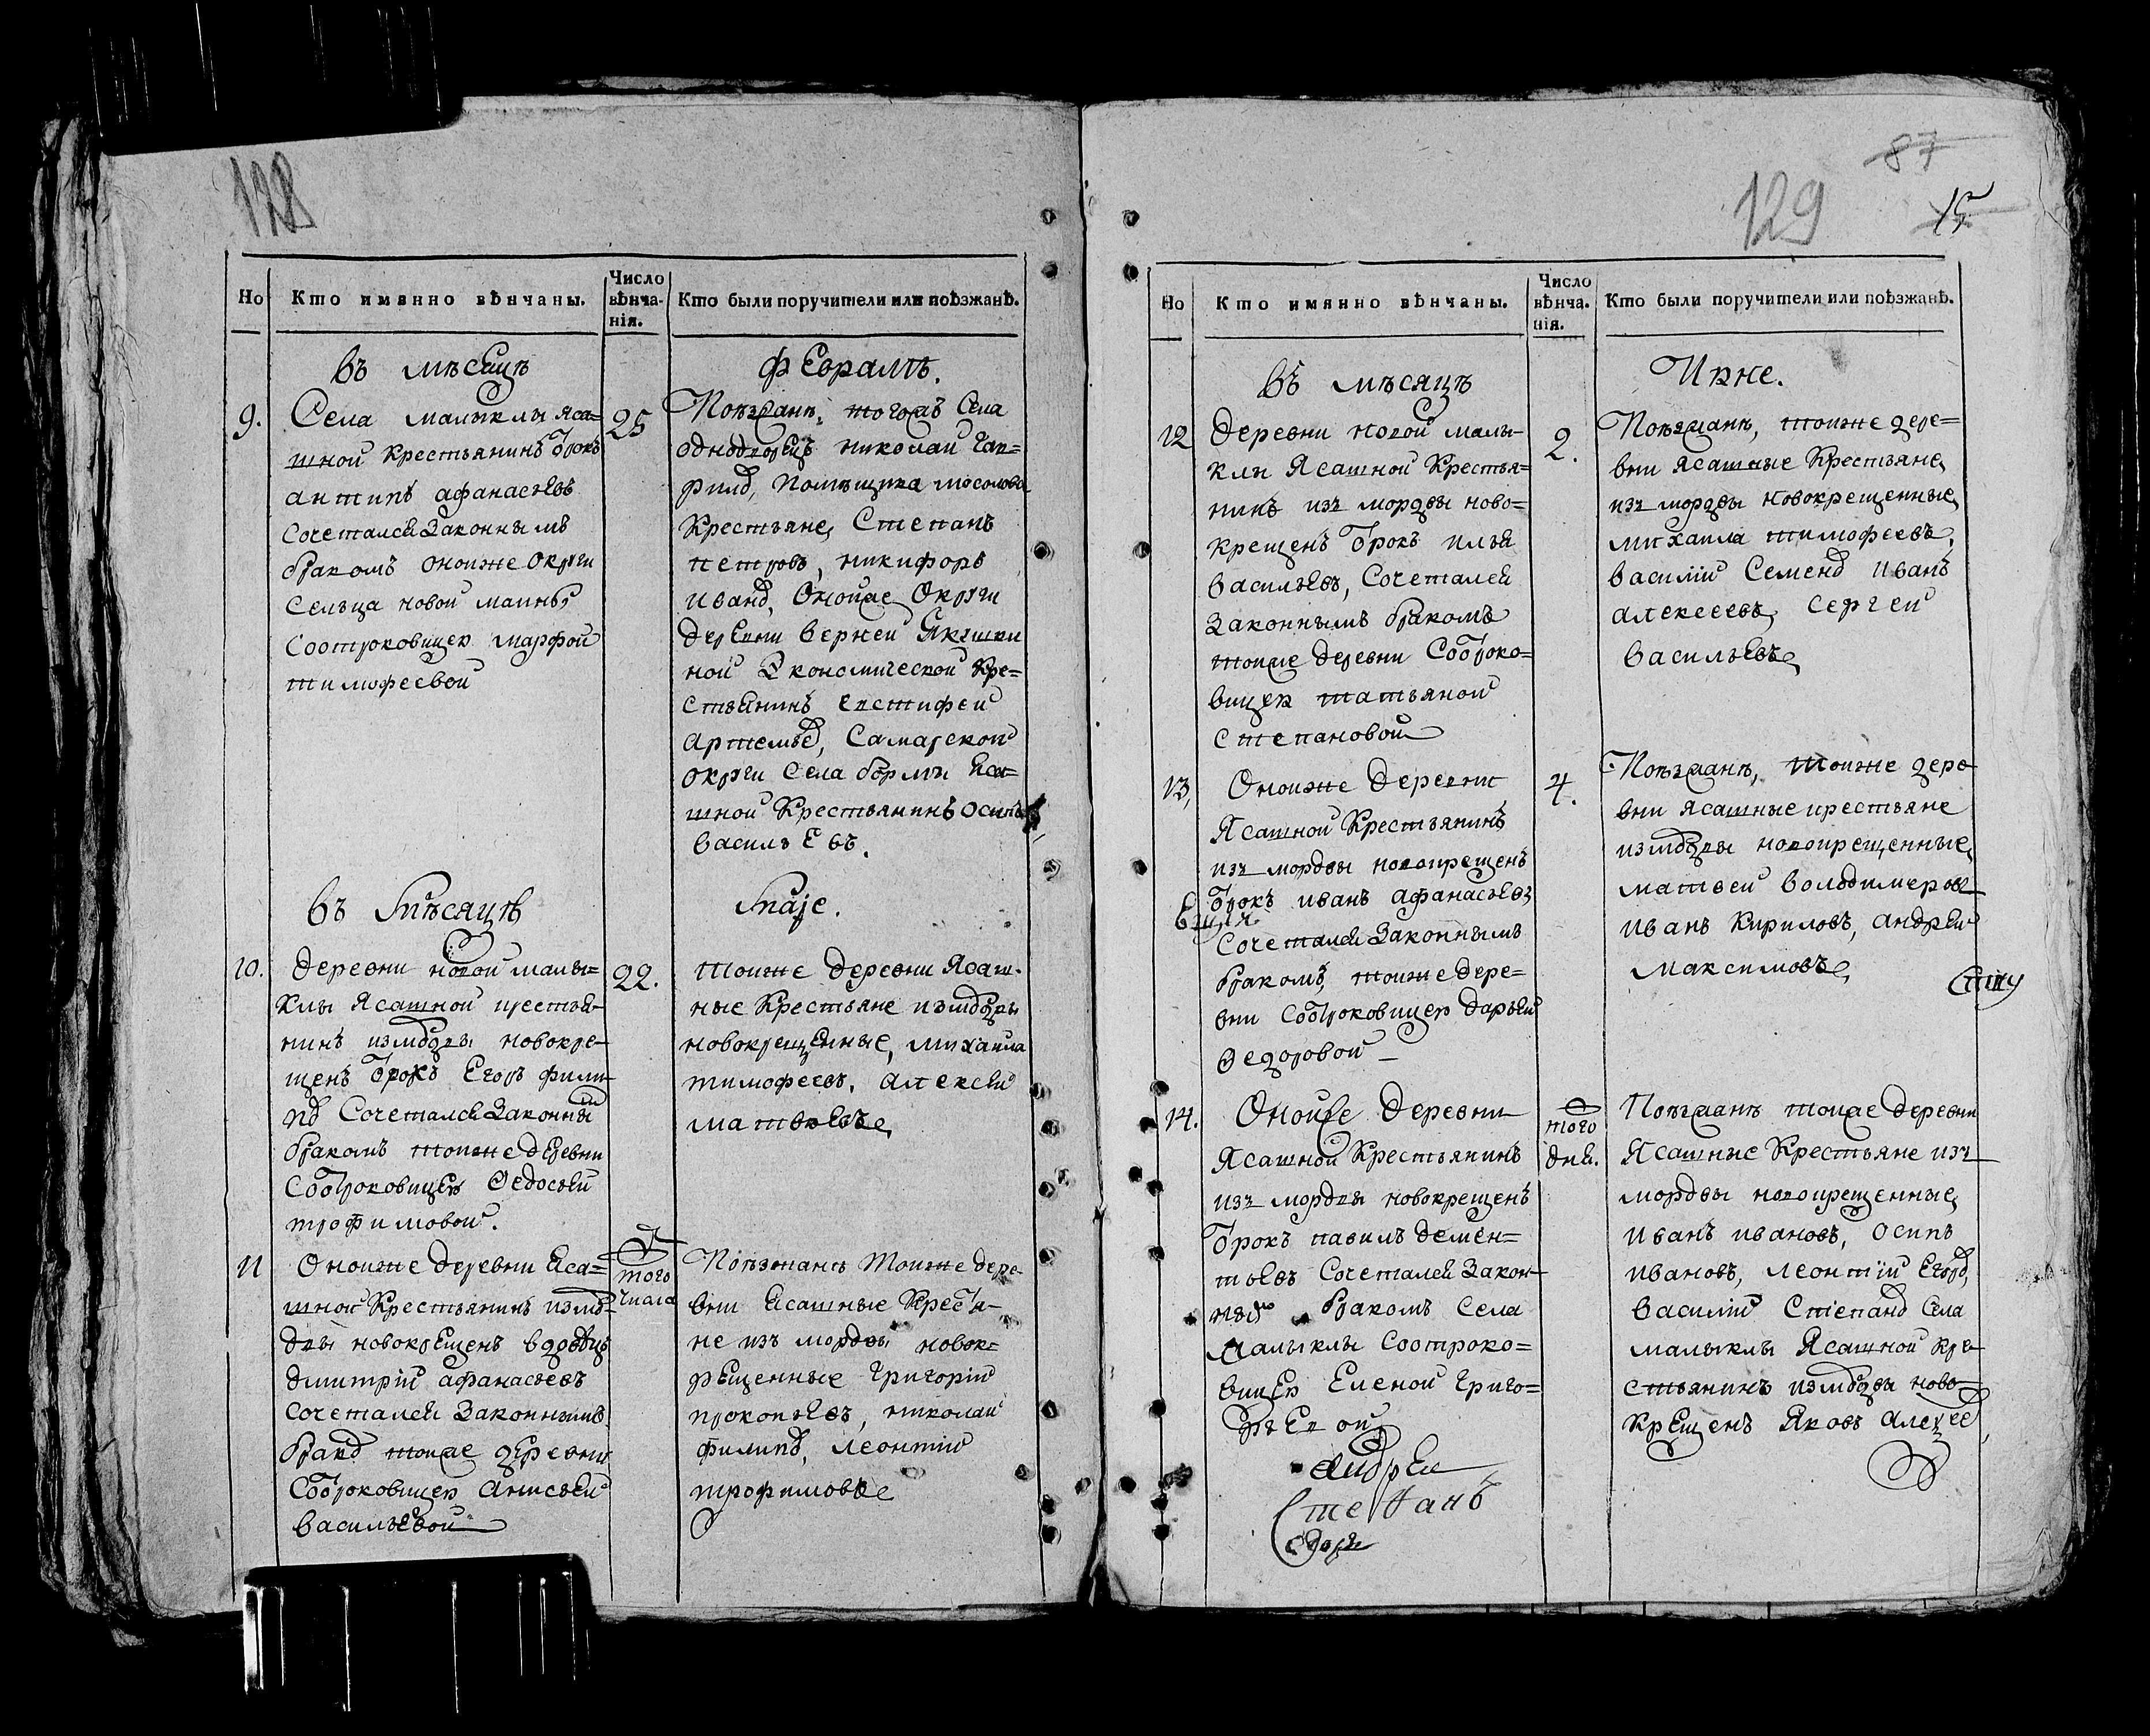 128
Но
Кто имянно вѣнчаны.
Число
вѣнча-
нія.
Кто были поручители или поѣзжанѣ.
въ мѣсецъ
февралѣ.
9.
Села малыклы яса=
шной крестьянинъ отрокъ
антипъ афанасьевъ
сочетался законнымъ
бракомъ оноиже округи
сельца новой маины
сотроковицею марфой
тимофеевой
25
Поѣзжанѣ, тогожъ села
однодворецъ николаи гав=
рилов, помѣщика мосолова
крестьяне, степанъ
петровъ, никифоръ
иванов, оноиже округи
деревни верхней Якушки
ной экономической кре=
стьянинъ евстифеи
артемьев, самарской
округи села бормы яса=
шной крестьянинъ осипъ
васильевъ.
въ мѣсяцѣ
маіе.
10.
деревни новой малы=
клы ясашной крестья-
нинъ измордвы новокре-
щенъ отрокъ Егоръ фили-
пов сочетался законным
бракомъ тоиже деревни
сотроковицею Ѳедосьей
трофимовой.
22.
тоиже деревни ясаш-
ные крестьяне измордвы
новокрещенные, михаила
тимофеевъ, алексей
матвѣевъ
11
Оноиже деревни яса=
шной крестьянинъ измор-
двы новокрещенъ вдовецъ
дмитріи афанасьевъ
сочетался законнымъ
браком тоиже деревни
сотроковицею анисьей
васильевой
того
числа
Поѣзжанѣ тоиже дере-
вни ясашные крестья-
не изъ мордвы новок-
рещенные григоріи
прокопьевъ, николаи
филипов, леонтіи
трофимовъ
87
129
15
Но
Кто имянно вѣнчаны.
Число
вѣнча-
нія.
Кто были поручители или поѣзжанѣ.
въ мѣсяцъ
Июне.
12
деревни новой малы-
клы ясашной крестья=
нинъ изъ мордвы ново=
крещенъ отрокъ илья
васильевъ, сочетался
законнымъ бракомъ
тоиже деревни сотроко=
вицею татьяной
степановой
2.
Поѣзжанѣ, тоиже дере=
вни ясашные крестьяне
изъ мордвы новокрещенные
михаила тимофеевъ,
василіи семенов иванъ
алексеевъ, сергеи
васильевъ
13,
Оноиже деревни
ясашной крестьянинъ
изъ мордвы новокрещенъ
отрокъ иванъ афанасьевъ
сочетался законнымъ
бракомъ, тоиже дере=
вни сотроковицею дарьей
Ѳедоровой
4.
Поѣзжанѣ, тоиже дере
вни ясашные крестьяне
измордвы новокрещенные
матвеи володимеров
иванъ кириловъ, андреи
максимовъ
14.
Оноиже деревни
ясашной крестьянинъ
изъ мордвы новокрещенъ
отрокъ павилъ демен=
тьевъ сочетался закон-
ным бракомъ села
малыклы сотроко=
вицею Еленой григо=
рьевой
того
дня.
Поѣзжанѣ тоиже деревни
ясашные крестьяне изъ
мордвы новокрещенные
иванъ ивановъ, осипъ
ивановъ, леонтіи Егоров,
василіи степанов села
малыклы ясашной кре-
стьянинъ измордвы ново-
крещенъ яковъ алексее
андреи
Степанъ